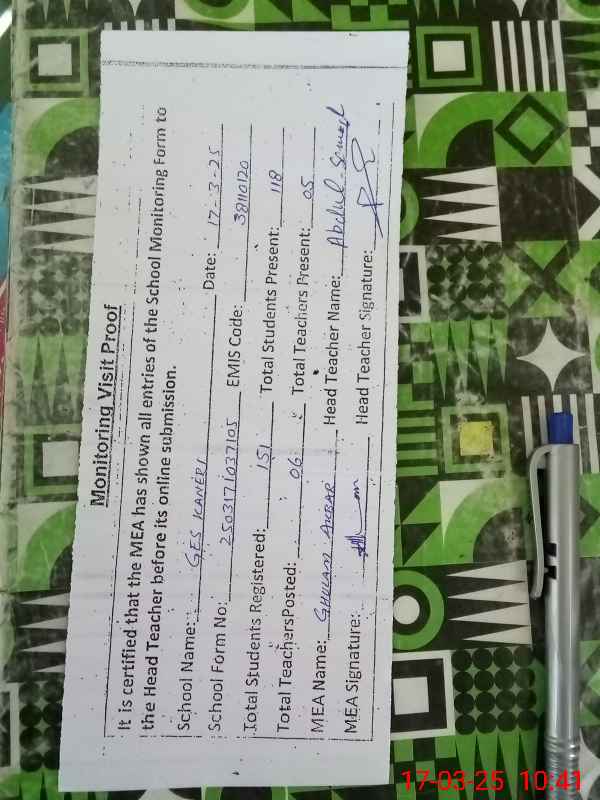 Monitoring Visit Proof
It is certified that the MEA has shown all entries of the School Monitoring Form to
the Head Teacher before its online submission.
School Name: GES KANERI Date: 17-3-25
School Form No: 2503171037105 EMIS Code: 38110120
Total Students Registered: 151 Total Students Present: 118
Total TeachersPosted: 06 Total Teachers Present: 05
MEA Name: GHULAM AKBAR Head Teacher Name: Abdul Samad
MEA Signature: Head Teacher Signature:
17-03-25 10:41